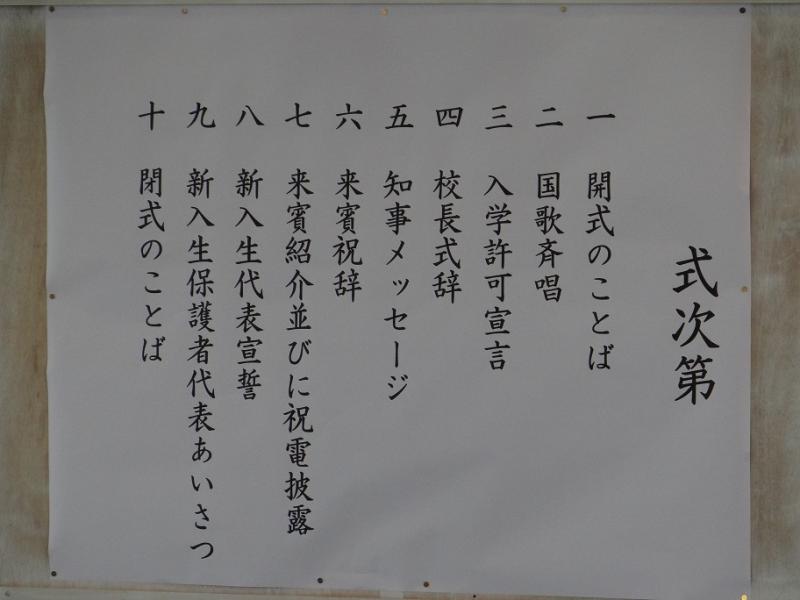 式次第
一 開式のことば
二 国歌斉唱
三 入学許可宣言
四 校長式辞
五 知事メッセージ
六 来賓祝辞
七 来賓紹介並びに祝電披露
八 新入生代表宣誓
九 新入生保護者代表あいさつ
十 閉式のことば